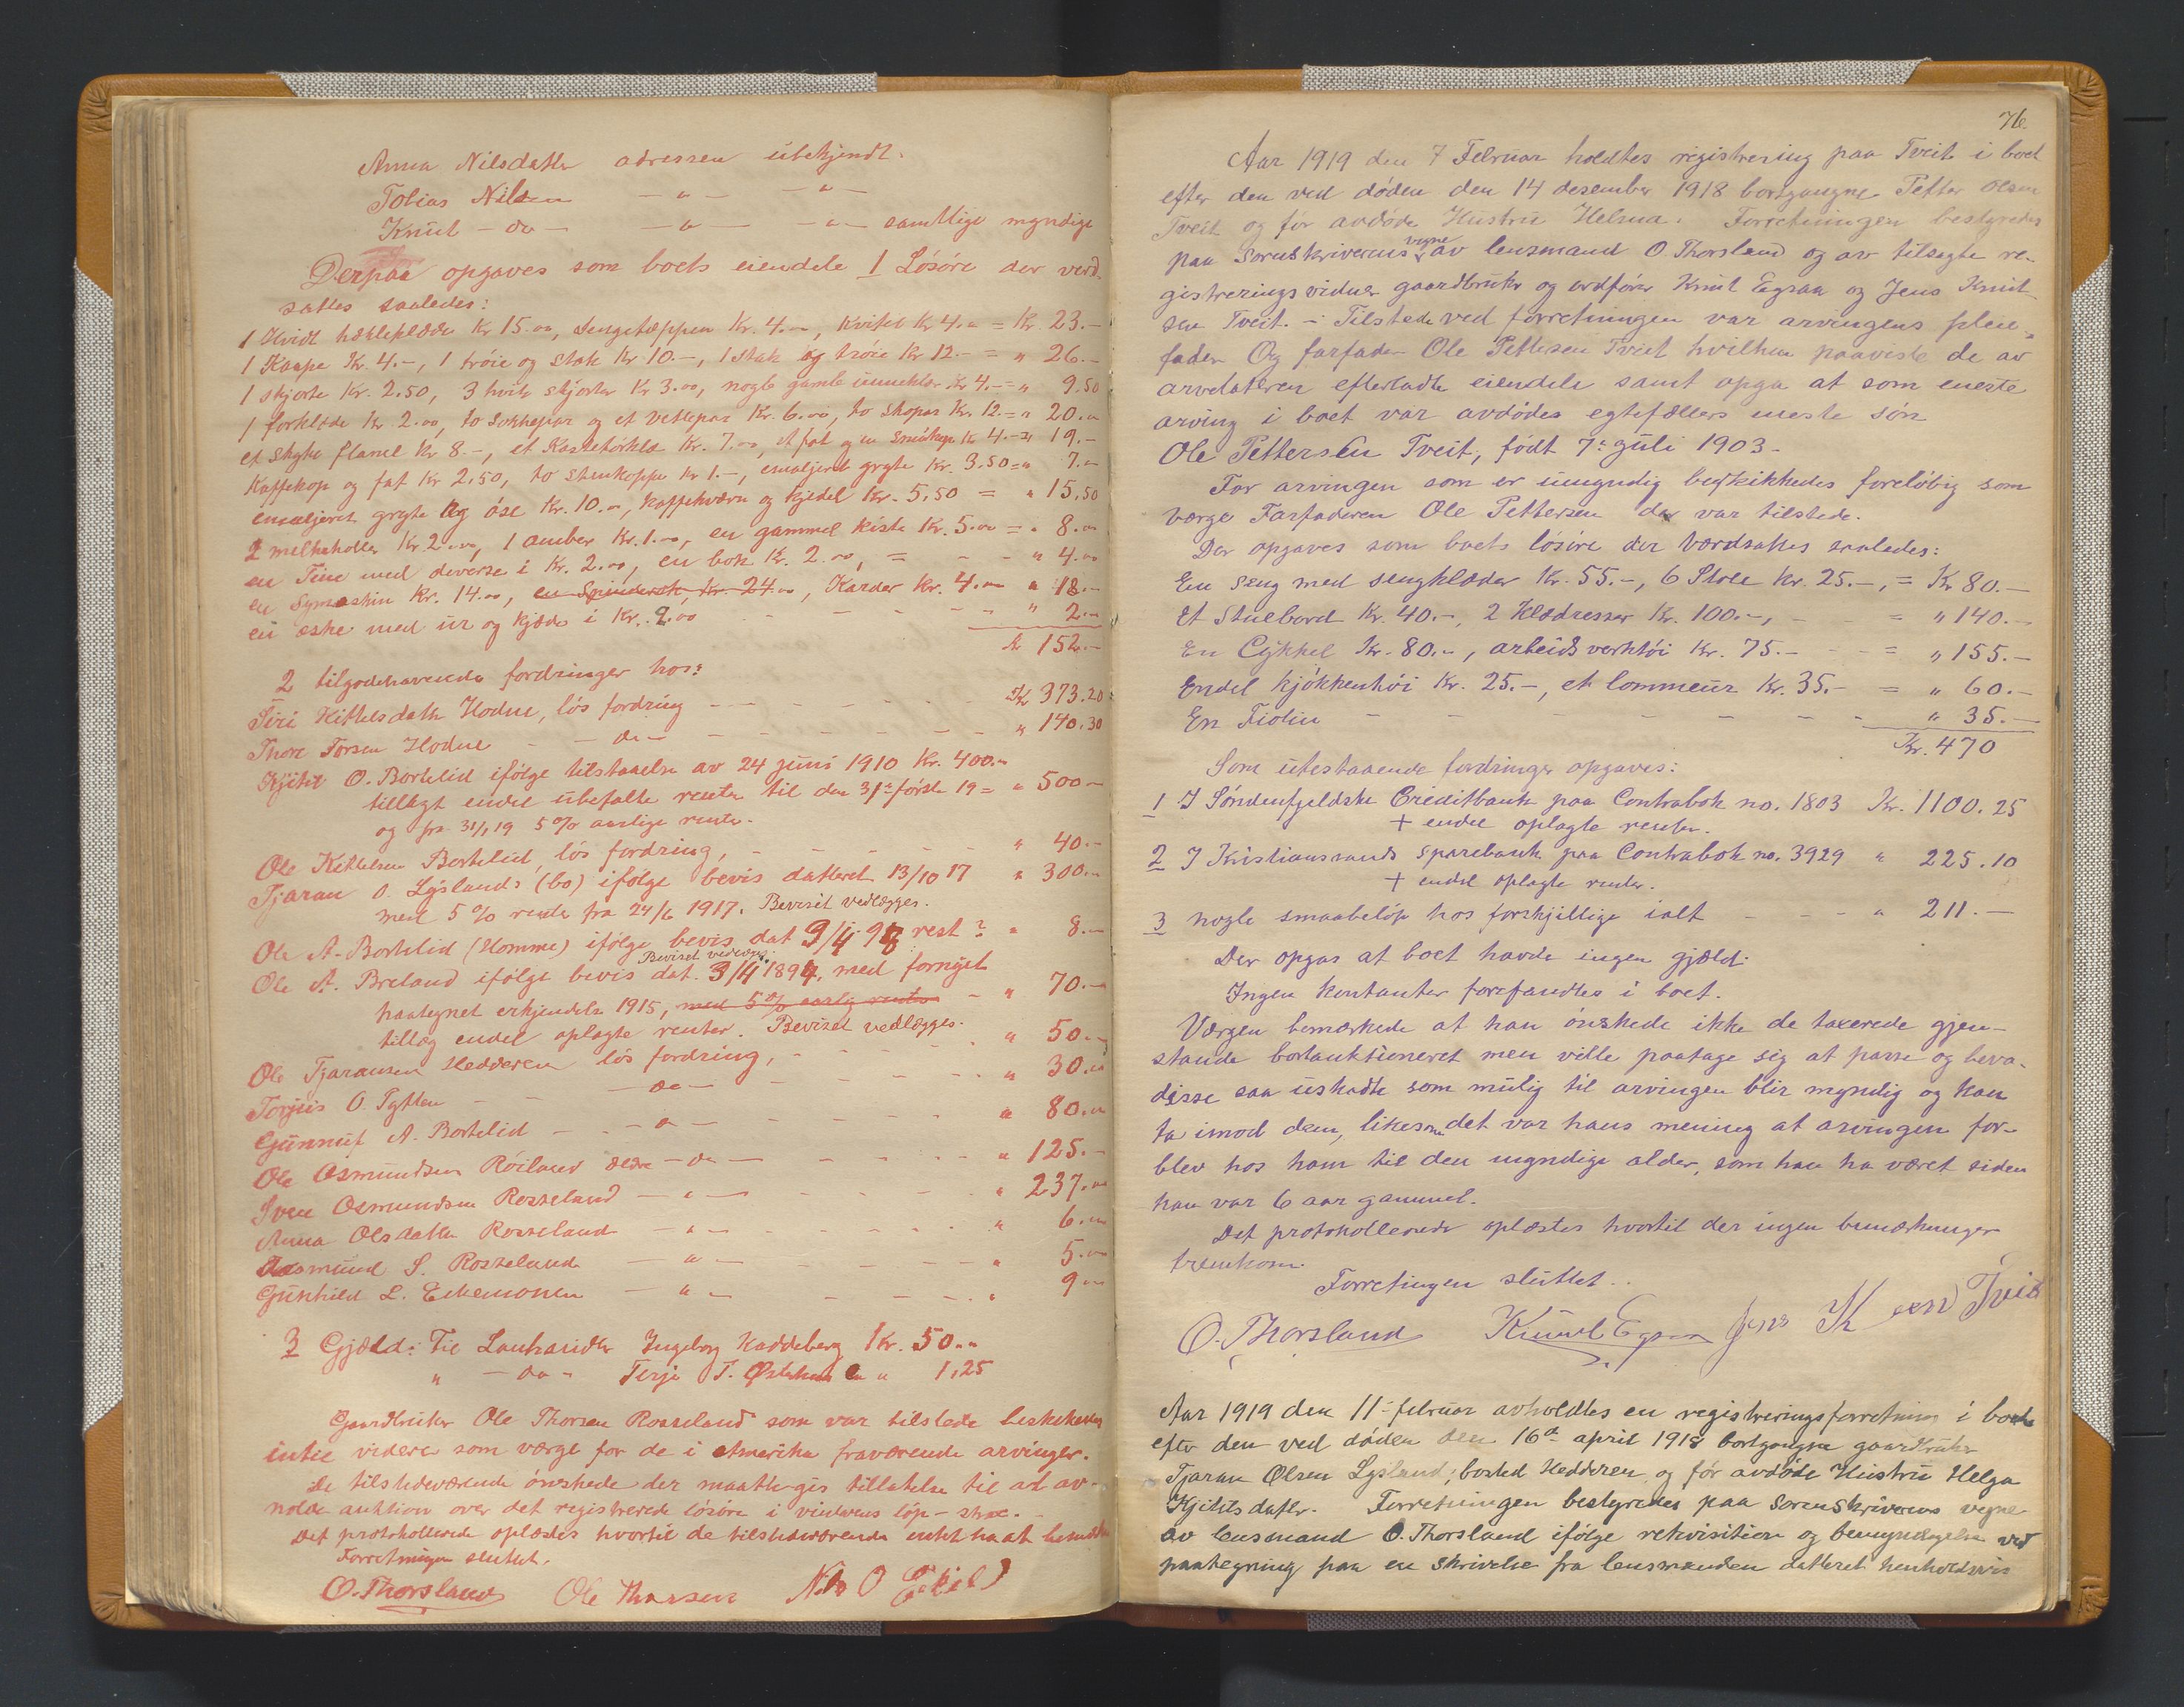 Anna Nilsdatter adressen ubekjendt.
Tobias Nilsen — " — — " —
Knut — do — — " — — " — samtlige myndige
Derpaa opgaves som boets eiendele 1 Løsøre der verd-
sattes saaledes:
1 Hvidt hækleklæde Kr 15.00, Sengetæppen Kr. 4.-, Kvitel Kr 4.00 = Kr. 23.-
1 Kaape Kr. 4.-, 1 trøie og Stak Kr 10.-, 1 Stak og trøie Kr 12.- = " 26.-
1 skjorte Kr. 2.50, 3 hvit skjorter Kr 3.00, nogle gamle Kr 4.- = " 9.50
1 forklæde Kr 2.00, to Sokkepar og et vottepar Kr. 6.00, to Skopar Kr. 12.- = " 20.00
et Stykke flanel Kr 8.-, et Kastetørklæ Kr. 7.00, et fat og en Kr 4.- = " 19.-
Kaffekop og fat Kr 2.50, to Stenkopper Kr 1.-, emaljeret gryte Kr. 3.50 = " 7.00
emaljeret gryte og øse Kr. 10.00, Kaffekværn og kjedel Kr. 5,50 = " 15,50
2 melkeholler Kr. 2.00, 1 amber Kr. 1.00, en gammel kiste Kr. 5.00 = " 8.00
en Tine med diverse i Kr. 2.00, en bok Kr. 2.00, = - - " 4.00
en Symaskin Kr. 14.00, en Spinderok, Kr. 24.00, Karder Kr. 4.00 " 18.-
en æske med ur og kjæde i Kr. 2.00 - - - - " 2.-
Kr 152.-
2 tilgodehavende fordringer hos:
Siri Kittelsdatter Hodne, løs fordring - - - - Kr 373.20
Thore Torsen Hodne - — do — - - - - " 140.30
Kjitil O. Bortelid ifølge tilstaaelse av 24 juni 1910 Kr. 400.-
tillagt endel ubetalte renter til den 31te første 19 = " 500 -
og fra 31/1 19 5 % aarlige renter.
Ole Kittelsen Bortelid, løs fordring, - - - - " 40.-
Tjaran O. Lyslands (bo) ifølge bevis datteret 13/10 17 " 300.-
med 5 % rente fra 24/6 1917. Beviset vedlægges.
Ole A. Bortelid (Homme) ifølge bevis dat 9/4 98 rest ? " 8.-
Beviset vedlægges.
Ole A. Breland ifølge bevis dat. 3/4 1894, med fornyet
paategnet erkjendelse 1915, med 5 % aarlig rente - " 70.-
tillæg endel oplagte renter. Beviset vedlægges.
Ole Tjaransen Hedderen løs fordring, - - - - " 50.-
Torjus O. Tyften - - — do — - - - " 30.00
Gunnuf A. Bortelid - - - " - - - - " 80.00
Ole Osmundsen Röiland ældre — do — - - - " 125.-
Sven Osmundsen Rosseland — " — - - - " 237.00
Anna Olsdatter Rosseland — " — - - - " 6.00
Aasmund S. Rosseland — " — - - - " 5.00
Gunhild L. — " — - - - " 9 00
3 Gjæld: Til Lanhandler Ingeborg Kaddeberg Kr. 50.-
" — do — Terje T. " 1,25
Gaardbruker Ole Thorsen Rosseland som var tilstede beskikkedes
intil videre som værge for de i Amerika fraværende arvinger.
De tilstedeværende ønskede der maatte gis tillatelse til at av-
holde auktion over det registrerede løsøre i vinterens løp - strax.
Det protokollerede oplæstes hvortil de tilstedeværende intet ha at bemærke
Forretningen sluttet.
O. Thorsland Ole Thorsen Nils O
76
Aar 1919 den 7 Februar holdtes registrering paa Tveit i boet
efter den ved døden den 14 desember 1918 bortgangne Petter Olsen
Tveit og før avdøde Hustru Helma. Forretningen bestyredes
paa Sorenskriverens vegne av lensmand O. Thorsland og av tilsagte re-
gistrerings vidner gaardbruker og ordfører Knut Egsaa og Jens Knut-
sen Tveit. - Tilstede ved forretningen var arvingens pleie-
fader Og farfader Ole Pettersen Tveit hvilken paaviste de av
arveladeren efterladte eiendele samt opga at som eneste
arving i boet var avdødes egtefællers eneste søn
Ole Pettersen Tveit, født 7de juli 1903.
For arvingen som er umyndig beskikkedes foreløbig som
værge Farfaderen Ole Pettersen der var tilstede.
Der opgaves som boets løsøre der værdsattes saaledes:
En seng med sengklæder Kr. 55.-, 6 Stole Kr. 25.-, = Kr 80.-
Et Stuebord Kr. 40.-, 2 Klædresser Kr. 100.-, - - = " 140.-
En Cykkel Kr. 80.-, arbeids verktøi Kr. 75.- - - = " 155.-
Endel kjøkkentøi Kr. 25.-, et lommeur Kr. 35.- = " 60.-
En Fiolin - - - - - - - - " 35.-
Kr. 470
Som utestaaende fordringer opgaves:
1 I Søndenfjeldske Creditbank paa Contrabok no. 1803 Kr. 1100.25
+ endel oplagte renter.
2 I Kristianssands Sparebank paa Contrabok no. 3929 " 225.10
+ endel oplagte renter.
3 nogle smaabeløp hos forskjillige ialt - - - " 211.-
Der opgas at boet havde ingen gjæld.
Ingen kontanter forefandtes i boet.
Værgen bemærkede at han ønskede ikke de taxerede gjen-
stande bortauktioneret men ville paatage sig at passe og beva-
disse saa uskadte som mulig til arvingen blir myndig og kan
ta imod dem, likesom det var hans mening at arvingen for-
blev hos ham til den myndige alder, som han ha været siden
han var 6 aar gammel.
Det protokollerede oplæstes hvortil der ingen bemærkninger
fremkom.
Forretingen sluttet..
O. Thorsland Knut Egsaa Jens K sen Tveit
Aar 1919 den 11te februar avholdtes en registreringsforretning i boet
efter den ved døden den 16de april 1918 bortgangne gaardbruker
Tjaran Olsen Lysland, bosted Hedderen og før avdøde Hustru Helga
Kjitilsdatter. Forretningen bestyredes paa sorenskriverens vegne
av lensmand O. Thorsland ifølge rekvisition og bemyndigelse ved
paategning paa en skrivelse fra lensmanden datteret henholdsvis